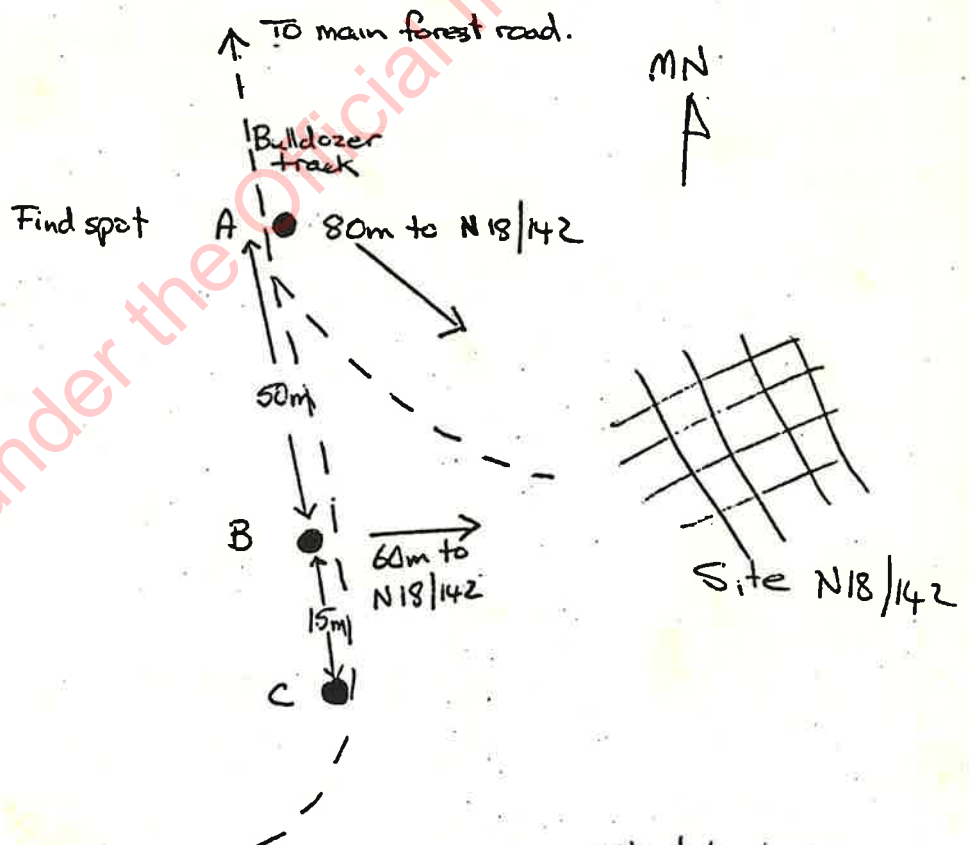 To main forest road.
MN
Bulldozer
track
Find spot
A
80m to N18/142
50m
B
60m to
N18/142
15m
C
Site N18/142
under the Official